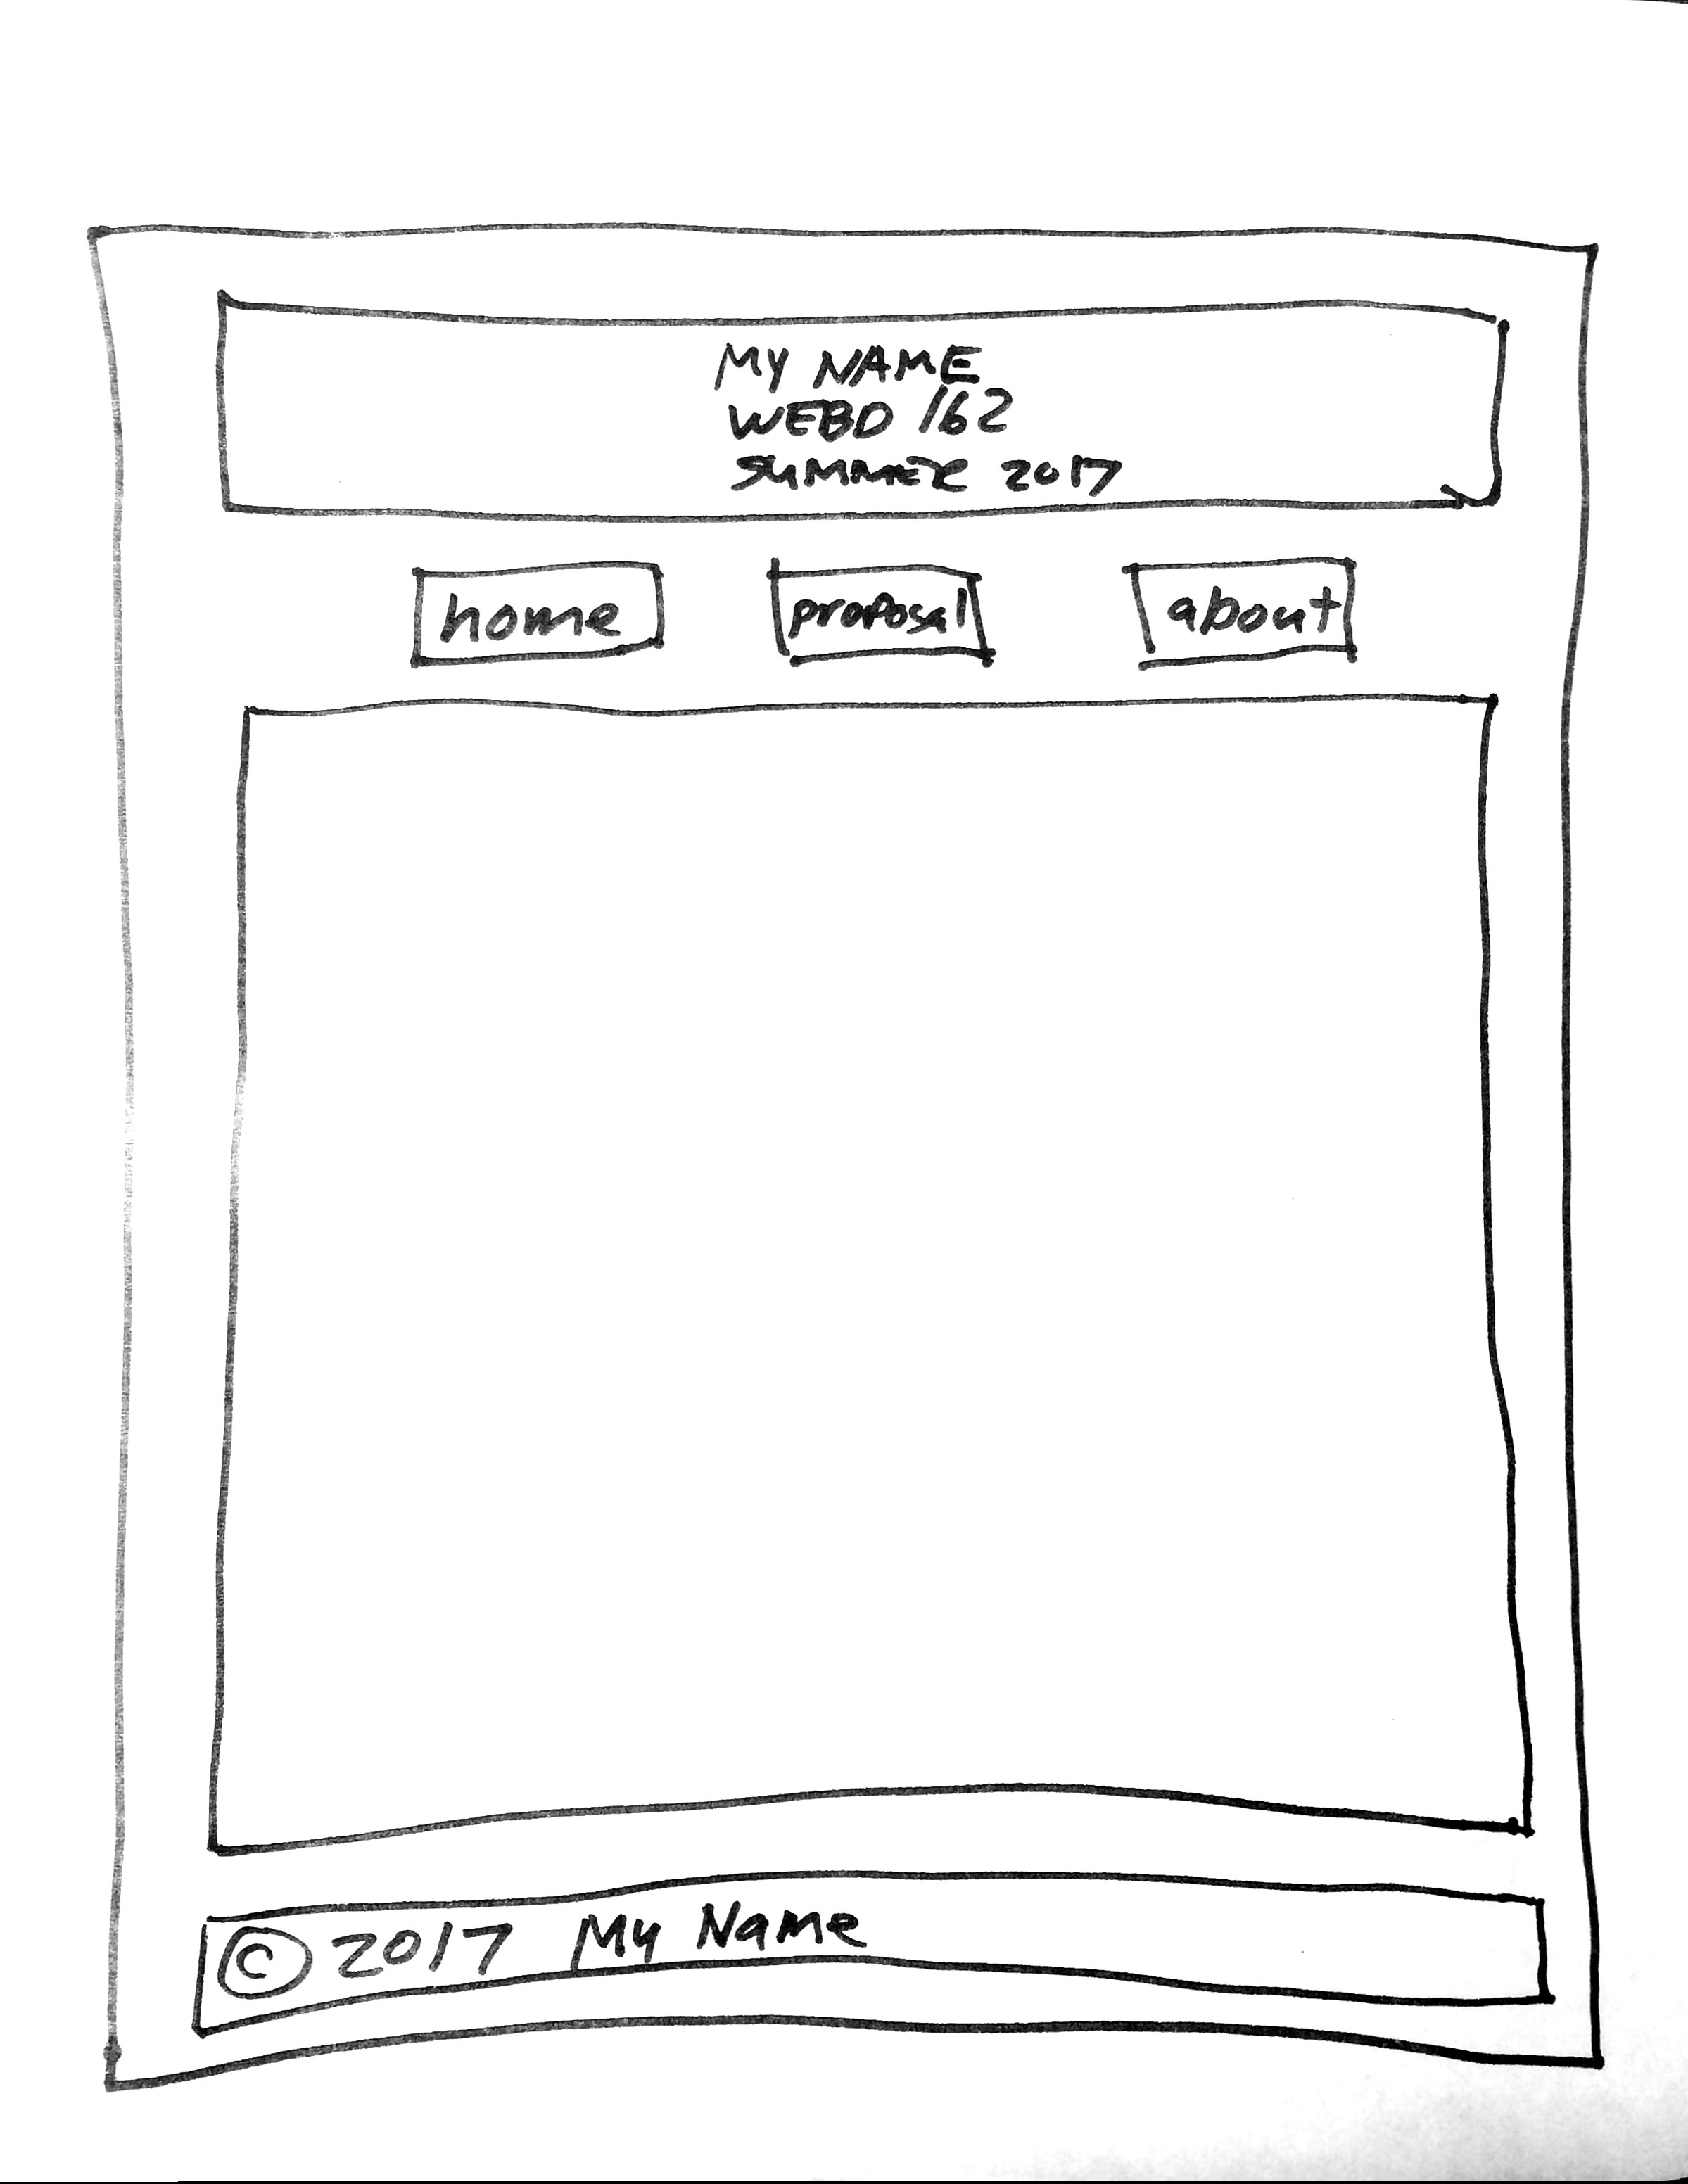 MY NAME
WEBD 162
SUMMER 2017
home proposal about
© 2017 My Name